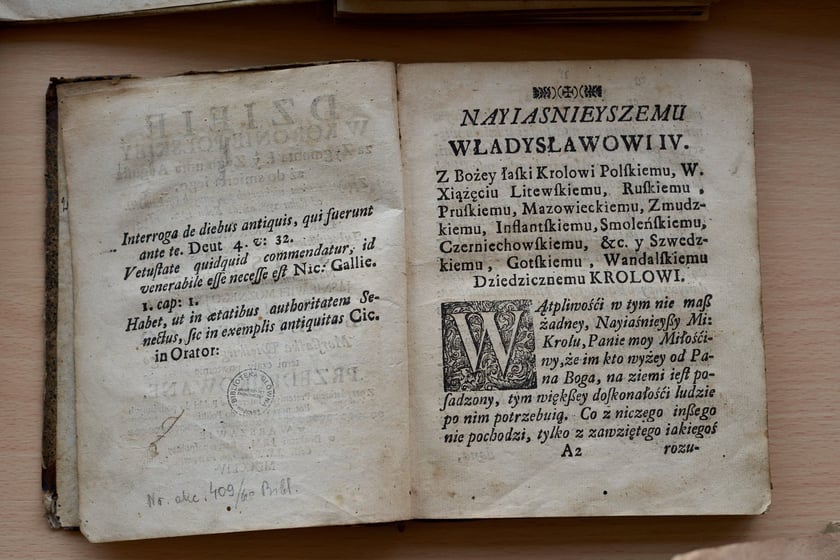 Interroga de diebus antiquis, qui fuerunt
ante te. Deut 4. v: 32.
Vetuſtate quidquid commendatur, id
venerabile eſſe neceſſe eſt Nic: Gallic.
1. cap: 1.
Habet, ut in ætatibus authoritatem Se-
nectus, ſic in exemplis antiquitas Cic.
in Orator:
BIBLIOTEKA GŁÓWNA
Nr. akc. 409/60 Bibl.
NAYIASNIEYSZEMU
WŁADYSŁAWOWI IV.
Z Bożey łaſki Krolowi Polſkiemu, W.
Xiążęciu Litewſkiemu, Ruſkiemu,
Pruſkiemu, Mazowieckiemu, Zmudz-
kiemu, Inflantſkiemu, Smoleńſkiemu,
Czerniechowſkiemu, &c. y Szwedz-
kiemu, Gotſkiemu, Wandalſkiemu
Dziedzicznemu KROLOWI.
WĄtpliwośći w tym nie maß
żadney, Nayiaśnieyßy Mi:
Krolu, Panie moy Miłośći-
wy, że im kto wyżey od Pa-
na Boga, na ziemi ieſt po-
ſadzony, tym więkßey doſkonałośći ludzie
po nim potrzebuią. Co z niczego inßego
nie pochodzi, tylko z zawziętego iakiegoś
A2 rozu-